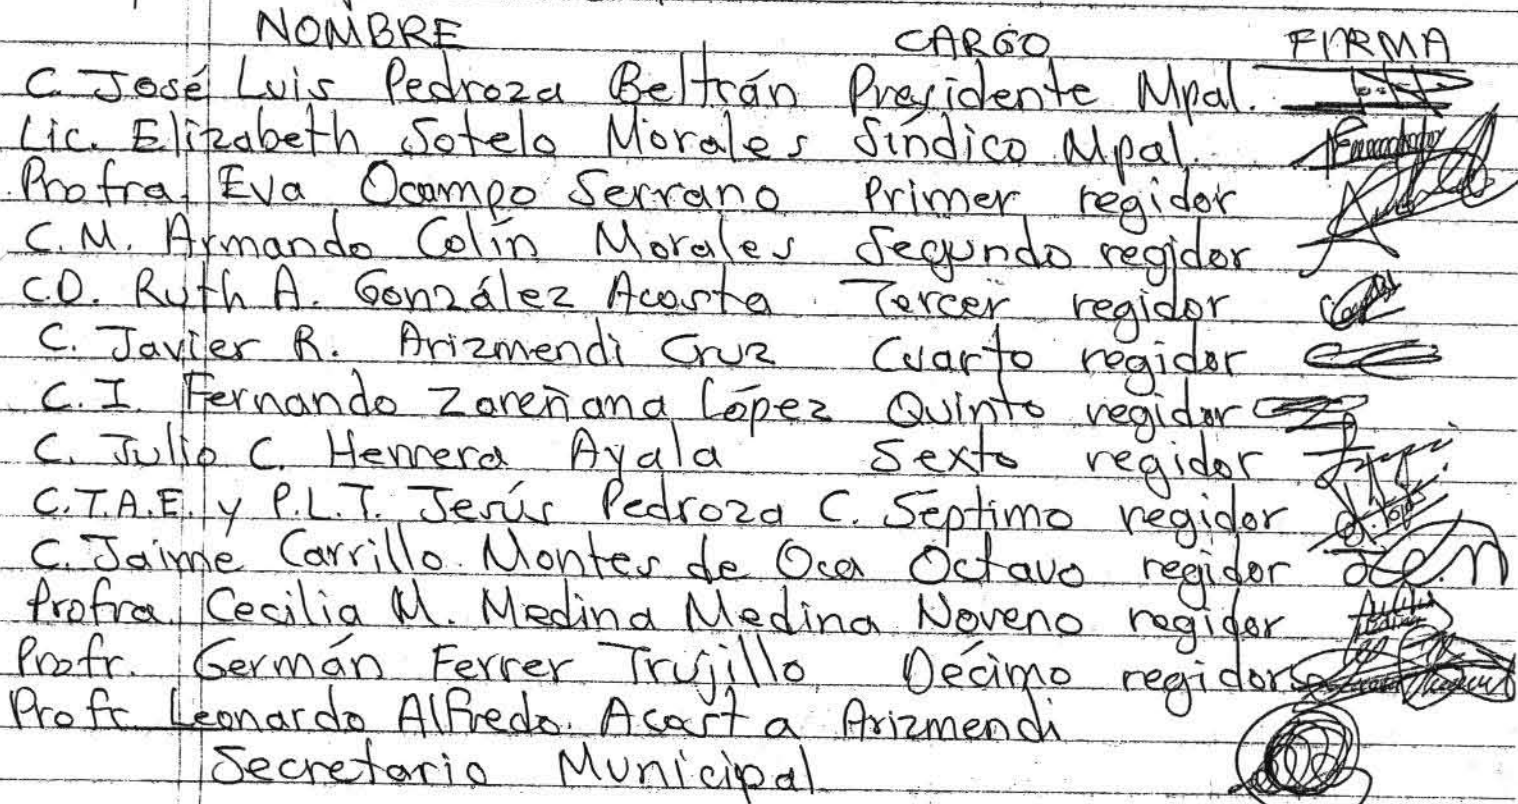 NOMBRE CARGO FIRMA
C. José Luis Pedroza Beltrán Presidente Mpal.
Lic. Elizabeth Sotelo Morales Síndico Mpal.
Profra. Eva Ocampo Serrano Primer regidor
C.M. Armando Colín Morales Segundo regidor
C.D. Ruth A. González Acosta Tercer regidor
C. Javier R. Arizmendi Cruz Cuarto regidor
C.I. Fernando Zareñana López Quinto regidor
C. Julio C. Herrera Ayala Sexto regidor
C.T.A.E. y P.L.T. Jesús Pedroza C. Septimo regidor
C. Jaime Carrillo Montes de Oca Octavo regidor
Profra. Cecilia M. Medina Medina Noveno regidor
Profr. Germán Ferrer Trujillo Décimo regidor
Profr. Leonardo Alfredo Acosta Arizmendi
Secretario Municipal